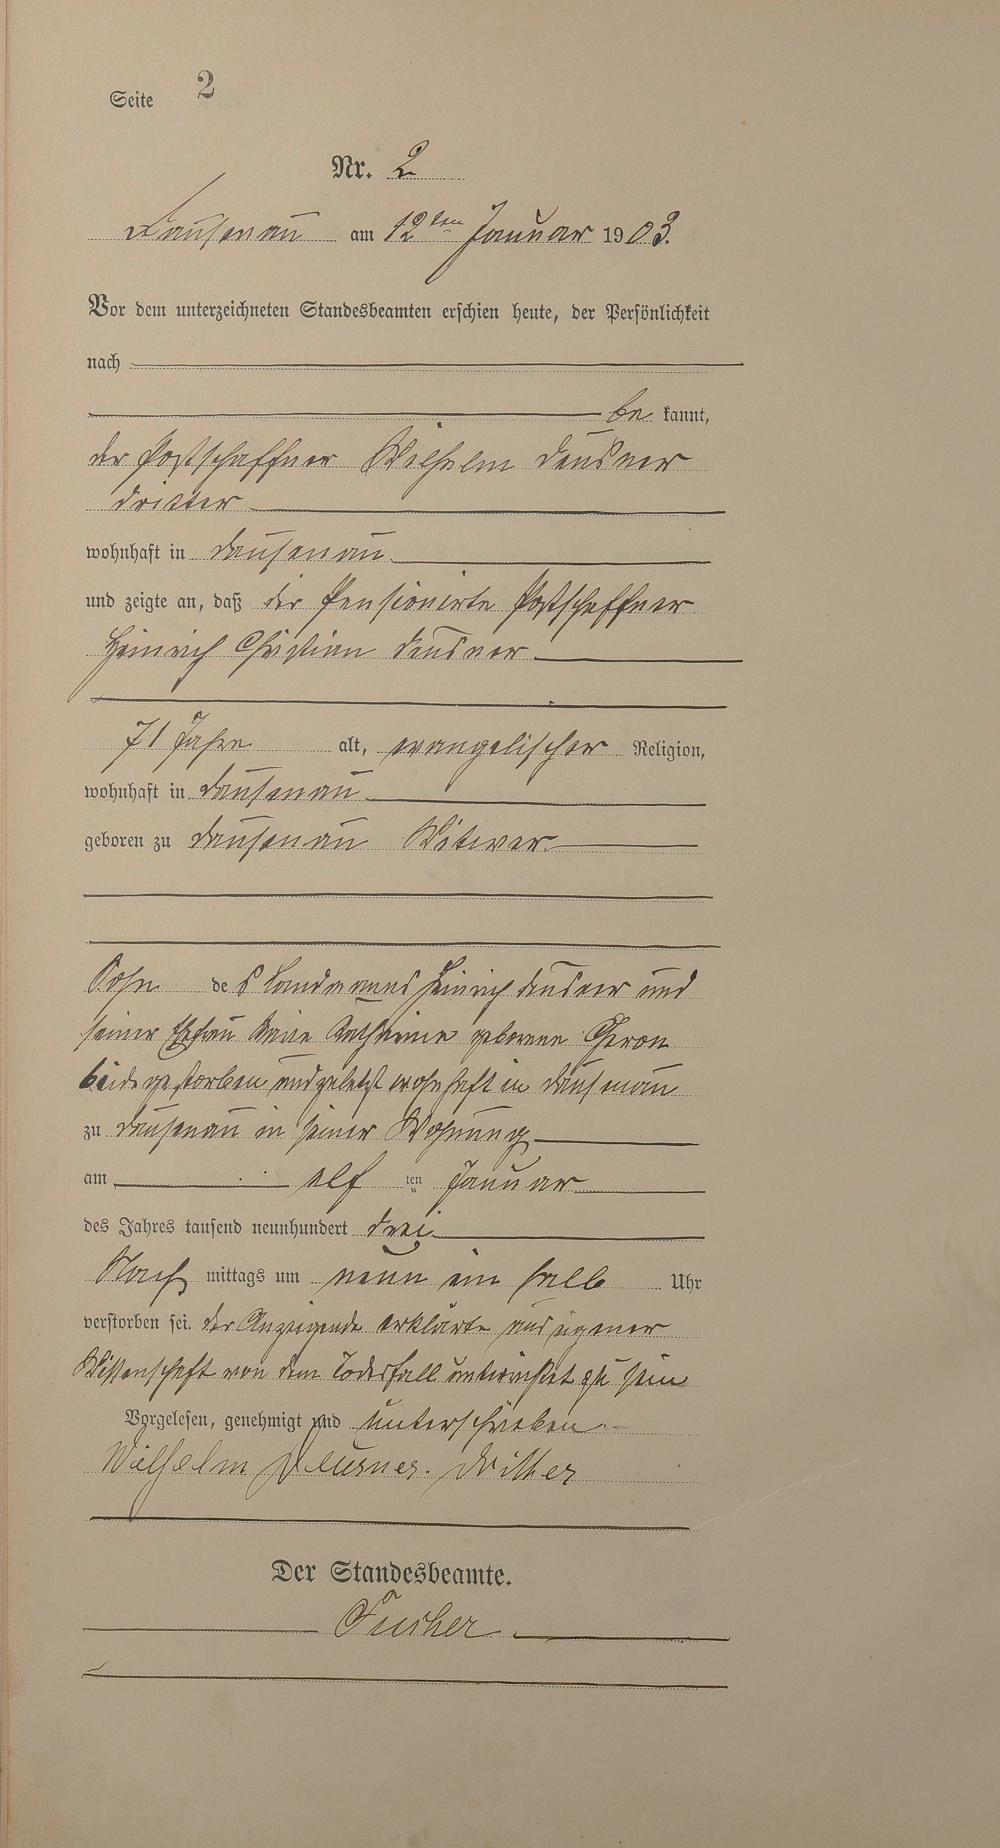 Seite 2
Nr. 2
Dausenau am 12ten Januar 1903.
Vor dem unterzeichneten Standesbeamten erschien heute, der Persönlichkeit
nach
be kannt,
der Postschaffner Wilhelm Deusner
dritter
wohnhaft in Dausenau
und zeigte an, daß der Pensionirte Postschaffner
Heinrich Christian Deusner
71 Jahre alt, evangelischer Religion,
wohnhaft in Dausenau
geboren zu Dausenau Witwer
Sohn des Landmanns Heinrich Deusner und
seiner Ehefrau Katherine geborene
beide gestorben und zuletzt wohnhaft in Dausenau
zu Dausenau in seiner Wohnung
am elf ten Januar
des Jahres tausend neunhundert drei
Nach mittags um neun ein halb Uhr
verstorben sei. der Anzeigende erklärte aus eigener
Wissenschaft von dem Todesfall unterrichtet zu sein
Vorgelesen, genehmigt und unterschrieben
Wilhelm Deusner. Dritter
Der Standesbeamte.